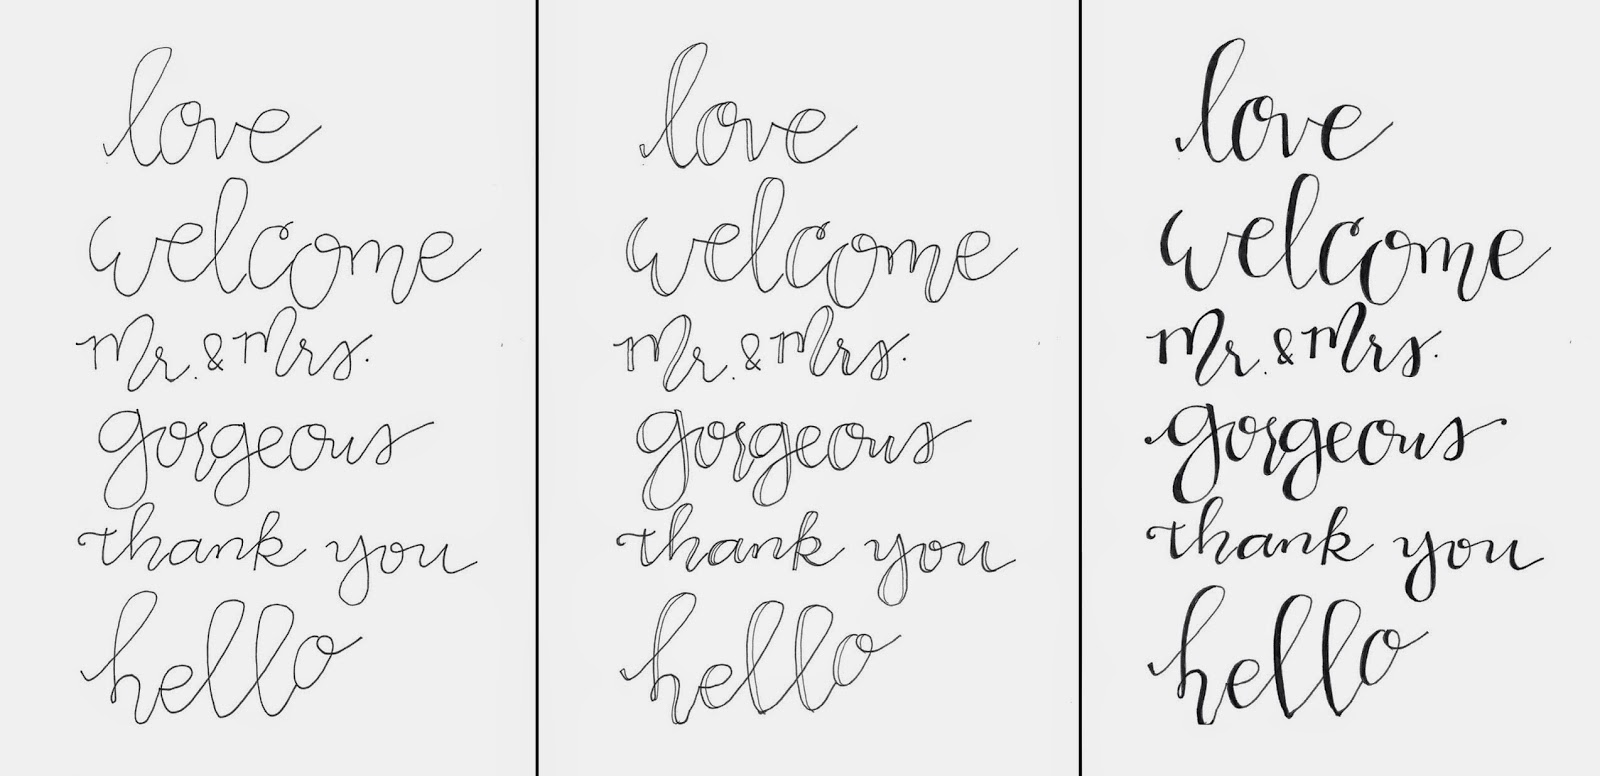 love
welcome
Mr. & Mrs.
gorgeous
thank you
hello
love
welcome
Mr. & Mrs.
gorgeous
thank you
hello
love
welcome
Mr. & Mrs.
gorgeous
thank you
hello